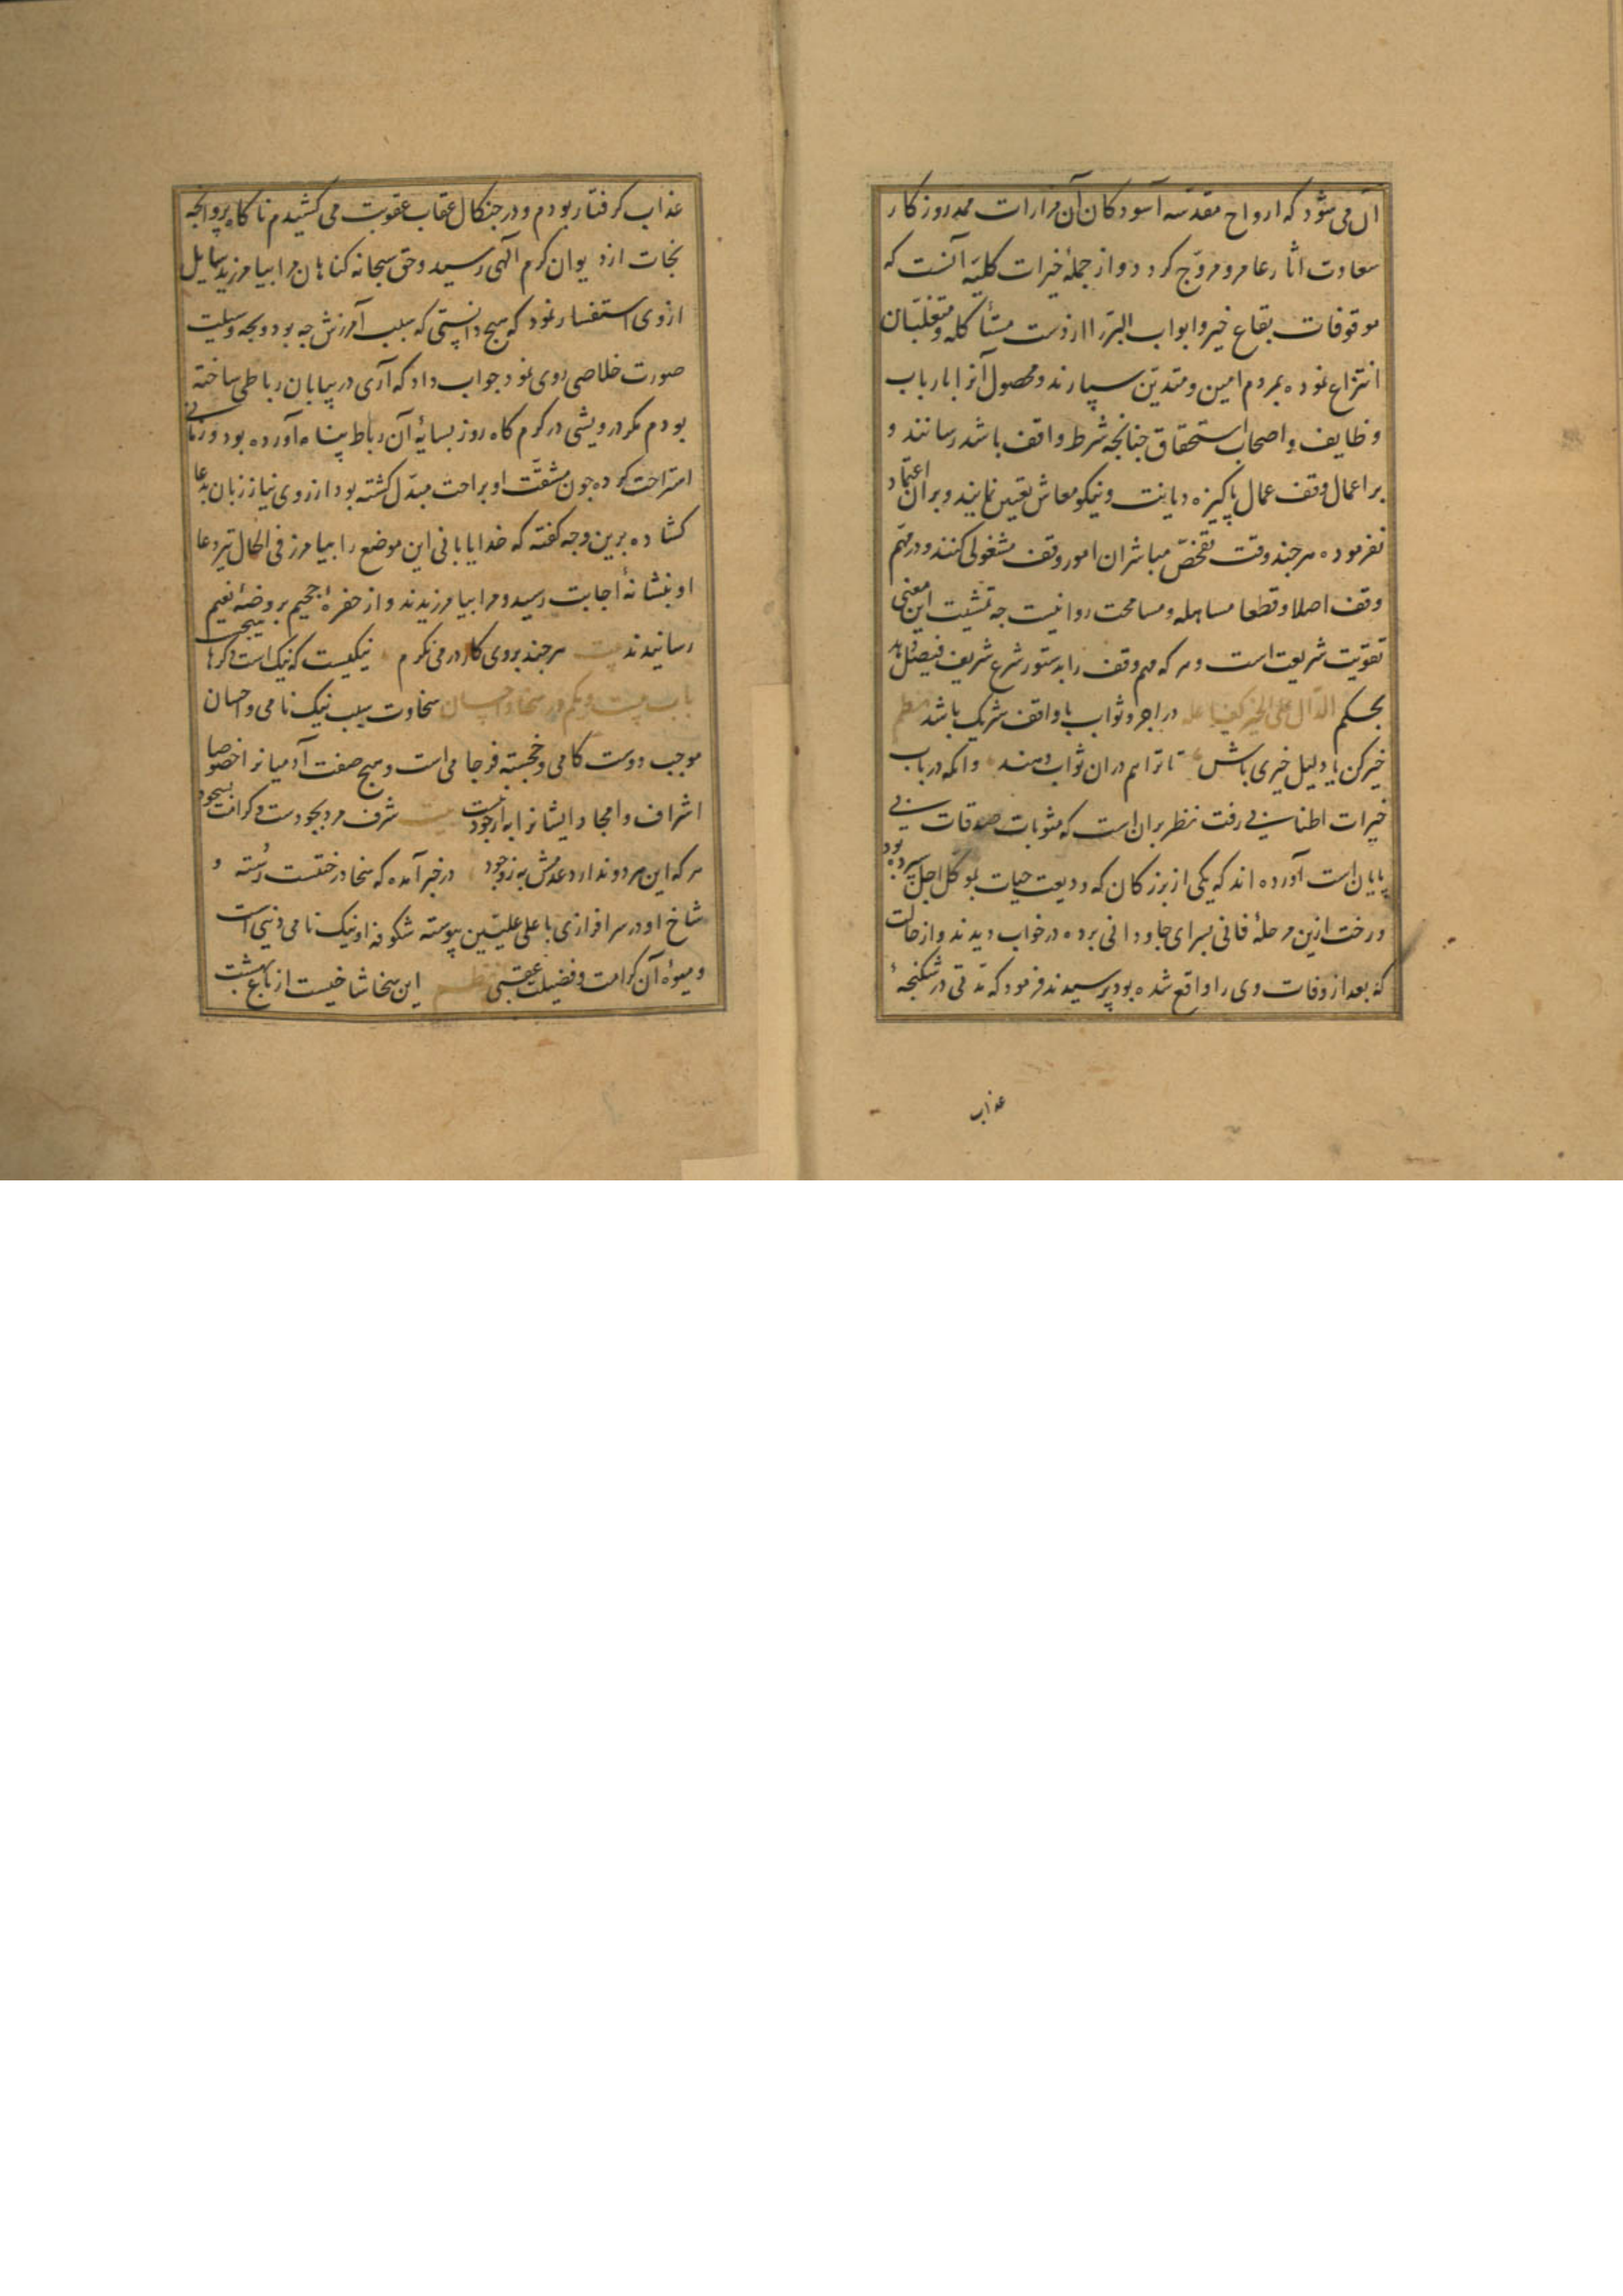 آن می شود که ارواح مقدسه آسودکان آن مزارات ممد روزکار
سعادت اثار عامر و مروّج کردد و از جملهٔ خیرات کلیّه آنست که
موقوفات بقاع خیر و ابواب البرّ را از دست متأکله و متغلّبان
انتزاع نموده بمردم امین و متدیّن سپارند و محصول آنرا بارباب
وظایف و اصحاب استحقاق جنانجه شرط واقف باشد رسانند و
بر اعمال وقف عمال پاکیزه دیانت و نیکو معاش تعیین نمایند و بر ان اعتماد
نفرموده هر جند وقت تفحّص مباشران امور وقف مشغولی کنند و در مهمّ
وقف اصلا و قطعا مساهله و مسامحت روا نیست جه تمشیت این معنی
تقویت شریعت است و هر که مهم وقف را بدستور شرع شریف فیصل دهد
بحکم الدّال علی الخیر کفاعله در اجر و ثواب با واقف شریک باشد نظم
خیر کن یا دلیل خیری باش تا ترا هم دران ثواب دهند وانکه در باب
خیرات اطنابی رفت نظر بران است که مثوبات صدقات بی
پایان است آورده اند که یکی از بزرکان که ودیعت حیات بموکل اجل سپرده بود
و رخت ازین مرحلهٔ فانی بسرای جاودانی برده در خواب دیدند و از حالت
که بعد از وفات وی را واقع شده بود پرسیدند فرمود که مدّتی در شکنجهٔ
عذاب
عذاب کرفتار بودم و در جنکال عقاب عقوبت می کشیدم ناکاه پروانجه
نجات از دیوان کرم آلهی رسید و حق سبحانه کناهان مرا بیامرزید سایل
ازوی استفسار نمود که هیج دانستی که سبب آمرزش جه بود و بجه وسیلت
صورت خلاصی روی نمود جواب داد که آری در بیابان رباطی ساخته
بودم مکر درویشی در کرم کاه روز بسایهٔ آن رباط پناه آورده بود و زمانی
استراحت کرده جون مشقّت او براحت مبدّل کشته بود از روی نیاز زبان بدعا
کشاده برین وجه کفته که خدایا بانی این موضع را بیامرز فی الحال تیر دعا
او بنشانهٔ اجابت رسید و مرا بیامرزیدند و از حفرهٔ جحیم بروضهٔ نعیم
رسانیدند بیت هر جند بروی کار در می نکرم نیکیست که نیک است دکرها
باب بیست و یکم در سخا و احسان سخاوت سبب نیک نامی و احسان
موجب دوست کامی و خجسته فرجامی است و هیج صفت آدمیانرا خصوصا
اشراف و امجاد ایشانرا به از جود نیست بیت شرف مرد بجودست و کرامت بسجود
هر که این هر دو ندارد عدمش به ز وجود در خبر آمده که سخا درختیست رُسته و
شاخ او در سرافرازی باعلی علیّین پیوسته شکوفه او نیک نامی دنیی است
و میوهٔ آن کرامت و فضیلت عقبی نظم این سخا شاخیست از باغ بهشت